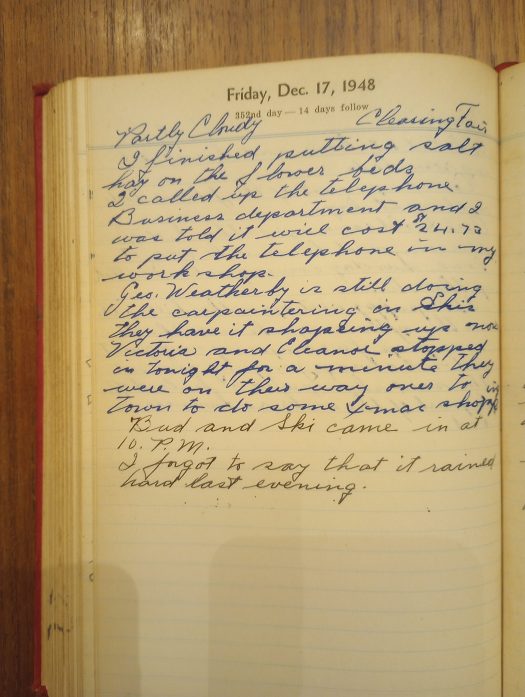 Friday, Dec. 17, 1948
352nd day — 14 days follow
Partly Cloudy Clearing Fair
I finished putting salt
hay on the flower beds
I called up the telephone
Business department and I
was told it will cost $24.73
to put the telephone in my
work shop.
Geo. Weatherby is still doing
the carpaintering on Skis
they have it shapeing up now
Victoria and Eleanor stopped
in tonight for a minute they
were on their way over to in
town to do some Xmas shop
Bud and Ski came in at
10. P.M.
I forgot to say that it rained
hard last evening.